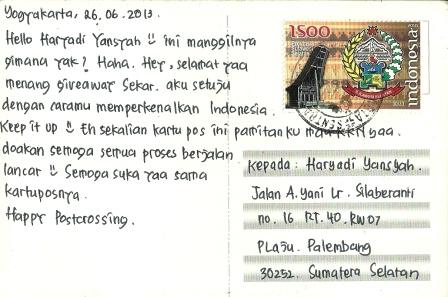 Yogyakarta, 26.06.2013.
Hello Haryadi Yansyah ini manggilnya
gimana yak? Haha. Hey, selamat yaa
menang giveaway Sekar. aku setuju
dengan caramu memperkenalkan Indonesia.
Keep it up Eh sekalian kartu pos ini pamitanku mau KKN yaa.
doakan semoga semua proses berjalan
lancar Semoga suka yaa sama
kartuposnya.
Happy Postcrossing.
1500
indonesia
Kepada: Haryadi Yansyah.
Jalan A.Yani Lr. Silaberanti
no. 16 RT. 40. RW 07
Plaju. Palembang
30252. Sumatera Selatan